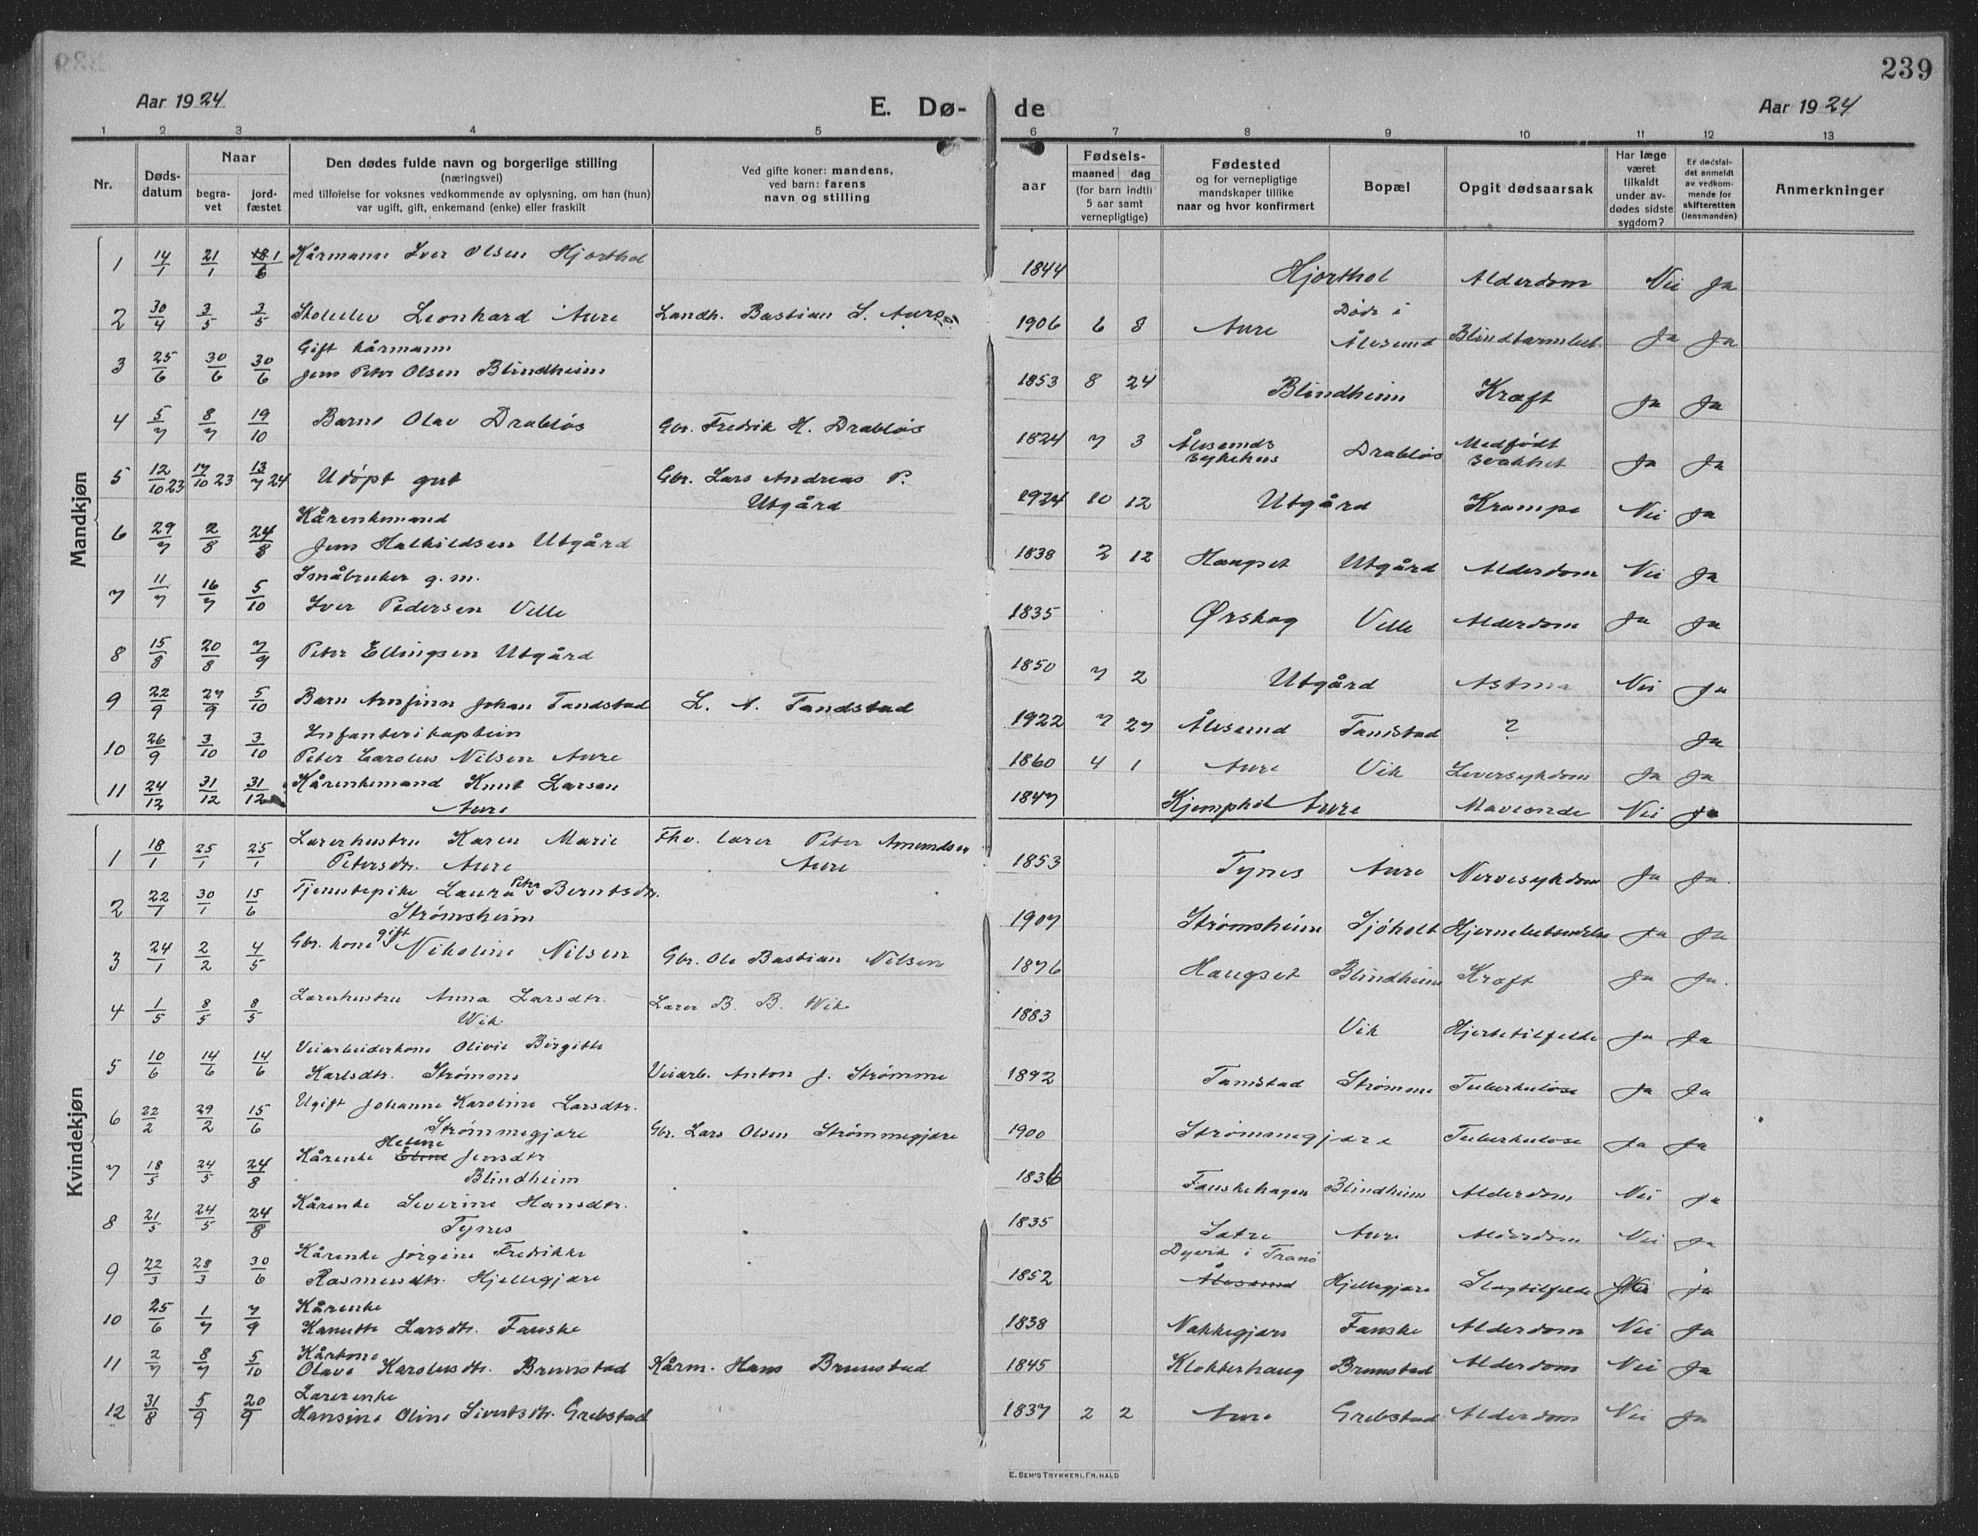 239
Aar 1924 E. Dø- de Aar 1924
1 2 3 4 5 6 7 8 9 10 11 12 13
Nr. Døds-datum Naar begra-vet jord-fæstet Den dødes fulde navn og borgerlige stilling (næringsvei) med tilføielse for voksnes vedkommende av oplysning, om han (hun) var ugift, gift, enkemand (enke) eller fraskilt Ved gifte koner: mandens, ved barn: farens navn og stilling aar Fødsels- maaned dag (for barn indtil 5 aar samt vernepligtige) Fødested og for vernepligtige mandskaper tillike naar og hvor konfirmert Bopæl Opgit dødsaarsak Har læge været tilkaldt under av-dødes sidste sygdom? Er dødsfal-det anmeldt av vedkom-mende for skifteretten (lensmanden) Anmerkninger
Mandkjøn
1 14/1 21/1 Kårmann Iver Olsen Hjorthol 1844 Hjorthol Alderdom Nei Ja
2 30/4 3/5 3/5 Skoleelev Leonhard Aure Landh. Bastian S. Aure 1906 6 8 Aure Døde i Ålesund Blindtarmbet. Ja Ja
3 25/6 30/6 30/6 Gift kårmann
Jens Peter Olsen Blindheim 1853 8 24 Blindheim Kræft Ja Ja
4 5/7 8/7 19/10 Barne Olav Drabløs Gbr. Fredrik H. Drabløs 1824 7 3 Ålesunds sykehus Drabløs Medfødt svakhet Ja Ja
5 12/10 23 17/10 23 13/7 24 Udøpt gut Gbr. Lars Andreas P.
Utgård 1924 10 12 Utgård Krampe Nei Ja
6 29/7 2/8 24/8 Kårenkemand
Jens Halkildsen Utgård 1838 2 12 Haugset Utgård Alderdom Nei Ja
7 11/7 16/7 5/10 Småbruker g.m.
Iver Pedersen Velle 1835 Ørskog Velle Alderdom Ja Ja
8 15/8 20/8 7/9 Peter Ellingsen Utgård 1850 7 2 Utgård Astma Nei Ja
9 22/9 27/9 5/10 Barn Arnfinn Johan Tandstad L. A. Tandstad 1922 7 27 Ålesund Tandstad ? Ja
10 26/9 3/10 3/10 Infanterikaptein
Peter Carolus Nilsen Aure 1860 4 1 Aure Vik Leversykdom Ja Ja
11 24/12 31/12 31/12 Kårenkemand Knut Larsen
Aure 1847 Kjemphol Aure Maveonde Nei Ja
Kvindekjøn
1 18/1 25/1 25/1 Lærerhustru Karen Marie Fhv. lærer Peter Amundsen
Petersdtr. Aure Aure 1853 Tynes Aure Nervesykdom Ja Ja.
2 22/1 30/1 15/6 Tjenestepike Laura Petra Berntsdtr.
Strømsheim 1907 Strømsheim Sjøholt Hjernebetændelse Ja Ja
3 24/1 2/2 4/5 Gbr. kone gift Nikoline Nilsen Gbr. Ole Bastian Nilsen 1876 Haugset Blindheim Kræft Ja Ja.
4 1/5 8/5 8/5 Lærerhustru Anna Larsdtr. Lærer B. B. Wik
Wik 1883 Vik Hjertetilfelde Ja Ja
5 10/6 14/6 14/6 Veiarbeiderkone Olivie Birgitte
Karlsdtr. Strømme Veiarb. Anton J. Strømme 1892 Tandstad Strømme Tuberkulose Ja Ja
6 22/2 29/2 15/6 Ugift Johanne Karoline Larsdtr.
Strømmegjære Gbr. Lars Olsen Strømmegjære 1900 Strømmegjære Tuberkulose Ja Ja
7 18/5 24/5 24/8 Kårenke Eline Helene Jensdtr
Blindheim 1836 Fauskehagen Blindheim Alderdom Nei Ja
8 21/5 24/5 24/8 Kårenke Severine Hansdtr.
Tynes 1835 Sætre Aure Alderdom Nei Ja
9 22/3 28/3 30/6 Kårenke Jørgine Fredrikke Dyvik i Tranø
Rasmusdtr. Hjellegjære 1852 Ålesund Hjellegjære Slagtilfelde Nei Ja
10 25/6 1/7 7/9 Kårenke
Kanutte Larsdtr. Fauske 1838 Nakkegjære Fauske Alderdom Nei Ja
11 2/7 8/7 5/10 Kårkone
Olave Karolusdtr. Brunstad Kårm. Hans Brunstad 1845 Klokkerhaug Brunstad Alderdom Nei Ja
12 31/8 5/9 20/9 Lærerenke
Hansine Oline Sivertsdtr. Grebstad 1837 2 2 Aure Grebstad Alderdom Nei Ja
E. SEM'S TRYKKERI, FR.HALD